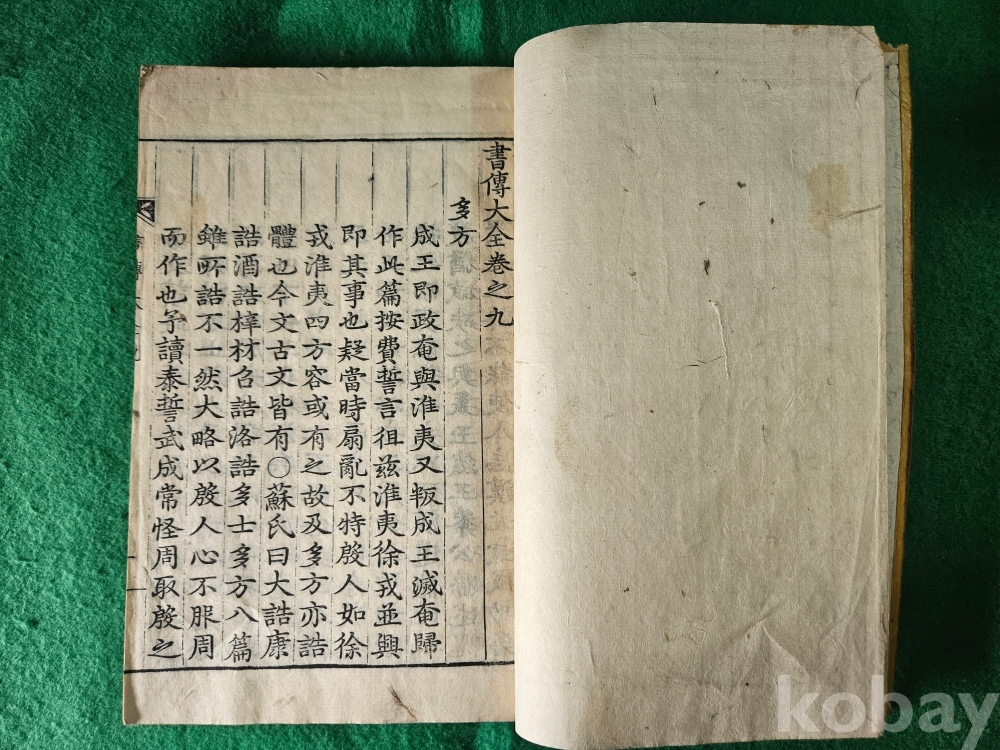 書傳大全卷之九
多方
成王即政奄與淮夷又叛成王滅奄歸
作此篇按費誓言徂玆淮夷徐戎並興
即其事也疑當時扇亂不特殷人如徐
戎淮夷四方容或有之故及多方亦誥
體也今文古文皆有〇蘇氏曰大誥康
誥酒誥梓材召誥洛誥多士多方八篇
雖所誥不一然大略以殷人心不服周
而作也予讀泰誓武成常怪周取殷之
kobay